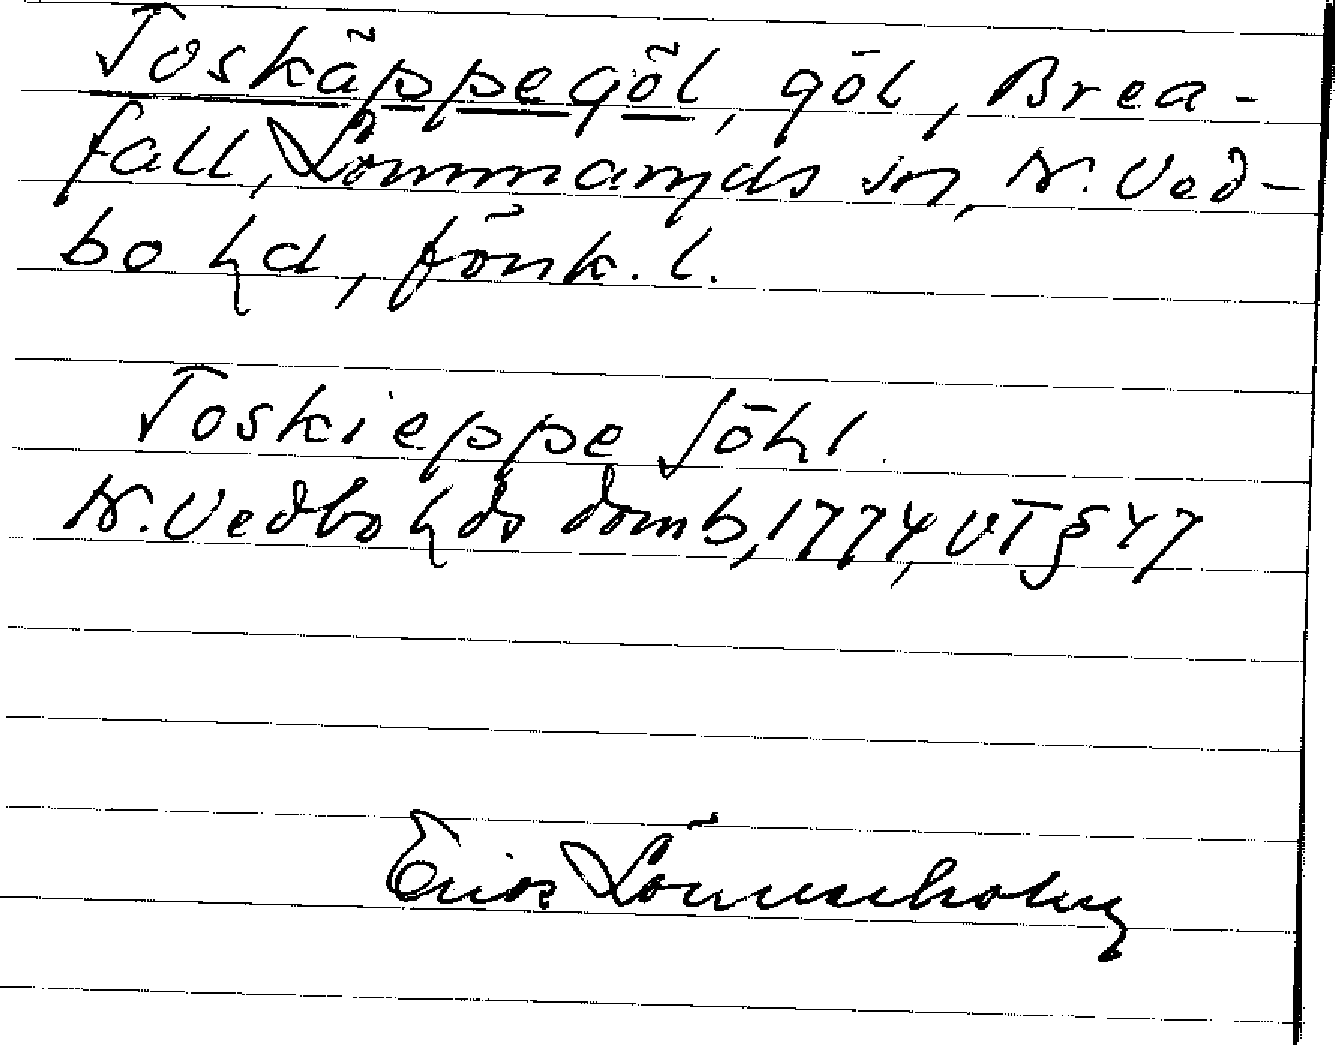 Toskäppegöl, göl, Brea-
fall, Lommaryds sn, N. Ved-
bo hd, Jönk. l.
Toskieppe Jöhl.
N. Vedbo hds domb, 1774, VT § 47
Erik Lönnerholm